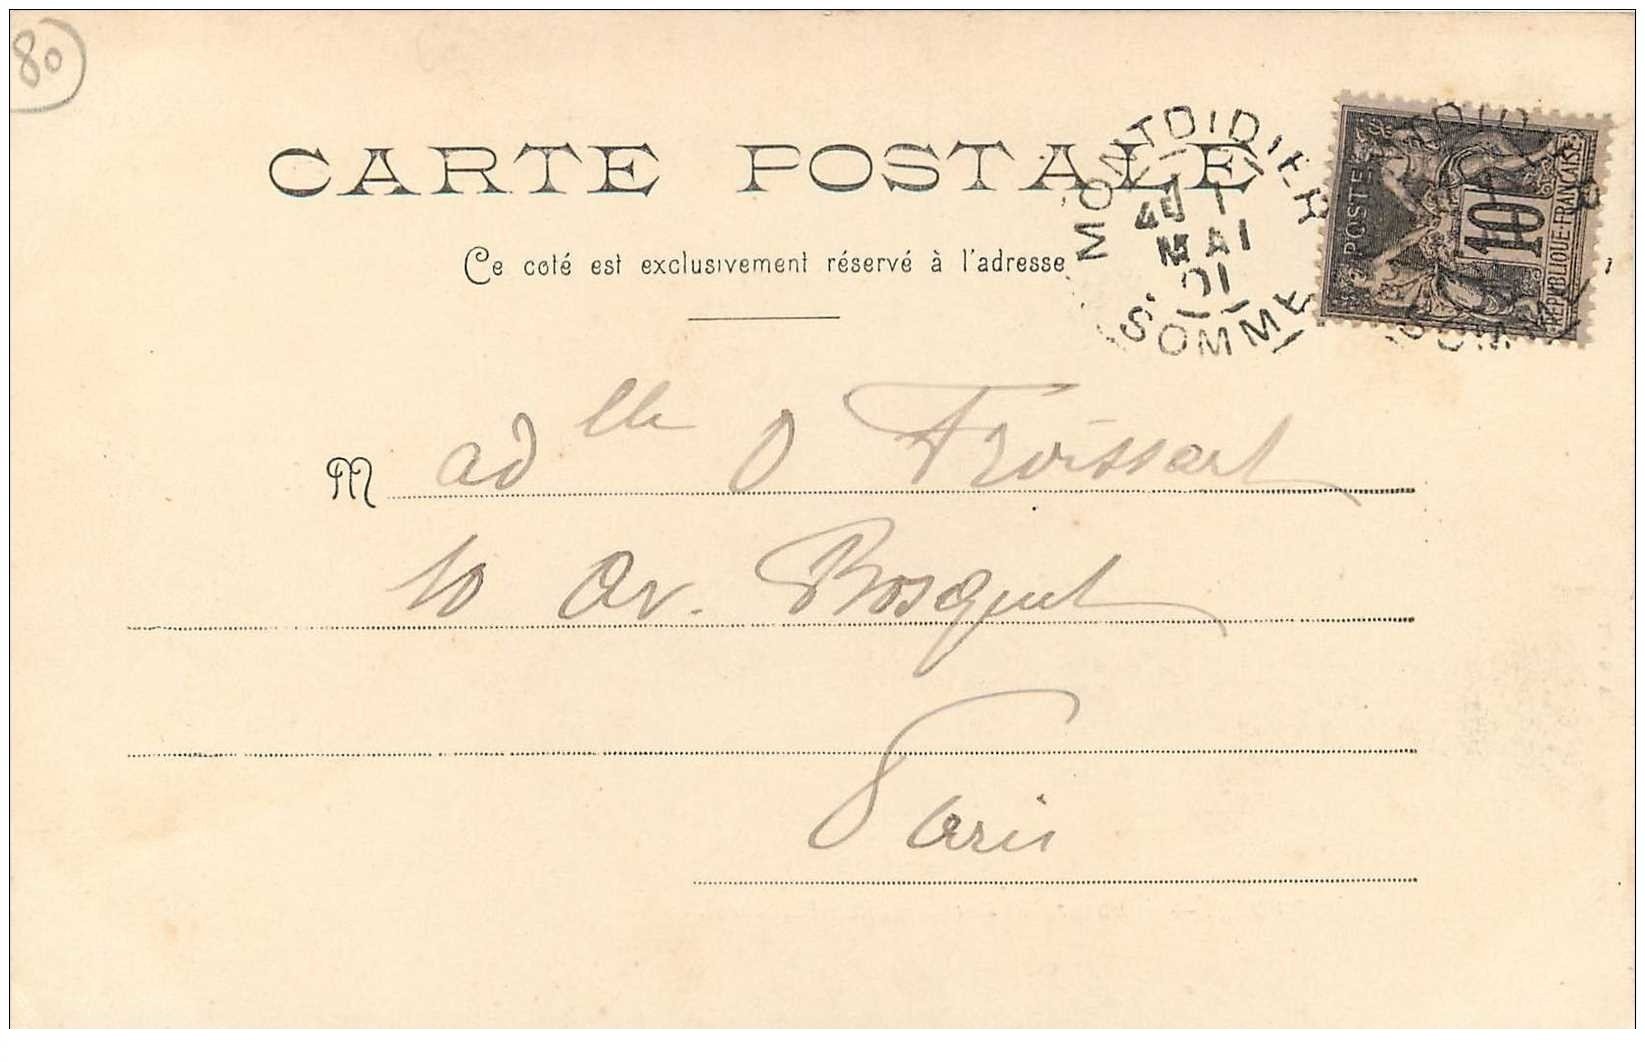 80
CARTE POSTALE
Ce coté est exclusivement réservé à l'adresse
MONTDIDIER
4E 1
MAI
01
SOMME
POSTES
10
REPUBLIQUE FRANÇAISE
Madlle O Froissart
10 Av. Bosquet
Paris